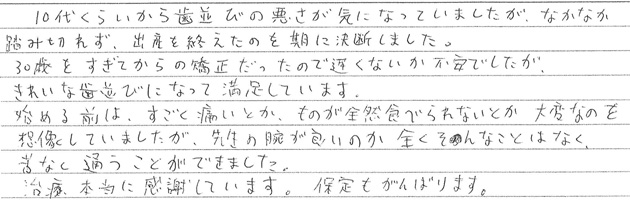 10代くらいから歯並びの悪さが気になっていましたが、なかなか
踏み切れず、出産を終えたのを期に決断しました。
30歳をすぎてからの矯正だったので遅くないか不安でしたが、
きれいな歯並びになって満足しています。
始める前は、すごく痛いとか、ものが全然食べられないとか 大変なのを
想像していましたが、先生の腕が良いのか 全くそんなことはなく、
苦なく通うことができました。
治療、本当に感謝しています。 保定もがんばります。